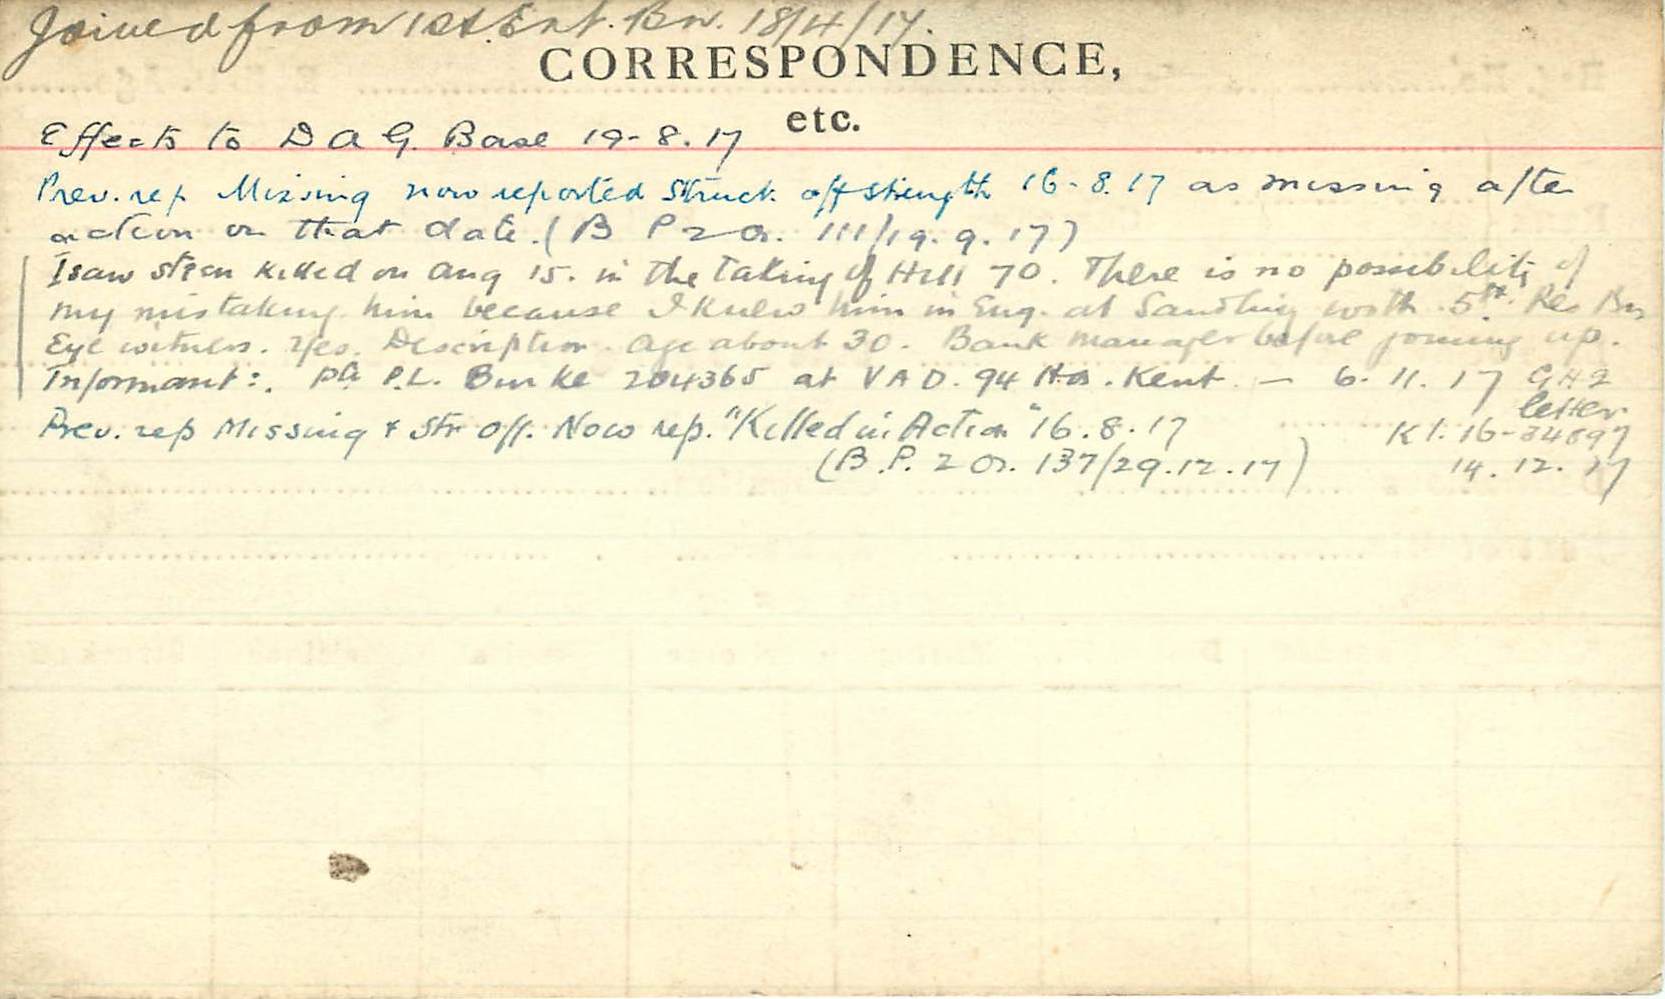 Joined from 1st. Ent. Bn. 18/4/17.
CORRESPONDENCE,
etc.
Effects to D A G. Base 19-8.17
Prev. rep Missing now reported Struck off strength 16-8.17 as missing after
action on that date. (B P 2 Or. 111/19.9.17)
I saw Steen killed on Aug 15. in the taking of Hill 70. There is no possibility of
my mistaking him because I knew him in Eng. at Sandling with 5th. Res Bn
Eye witness. Yes. Description. Age about 30. Bank manager before joining up.
Informant:. Pte P.L. Burke 204365 at V A D. 94 Hos. Kent - 6.11.17 G H Q
letter.
Prev. rep Missing & Str off. Now rep. "Killed in Action" 16.8.17 K1.16-34897
(B.P. 2 Or. 137/29.12.17) 14.12.17